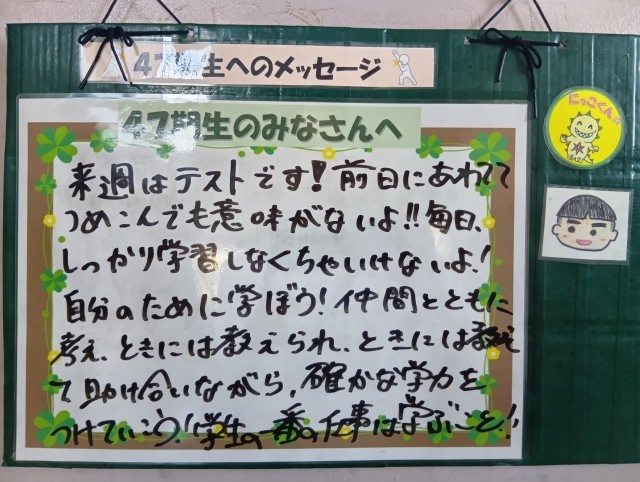 47期生へのメッセージ
47期生のみなさんへ
にっこくん
来週はテストです!前日にあわてて
つめこんでも意味がないよ!!毎日、
しっかり学習しなくちゃいけないよ!
自分のために学ぼう!仲間とともに
考え、ときには教えられ、ときには教え
て助け合いながら、確かな学力を
つけていこう!学生の一番の仕事は学ぶこと!!